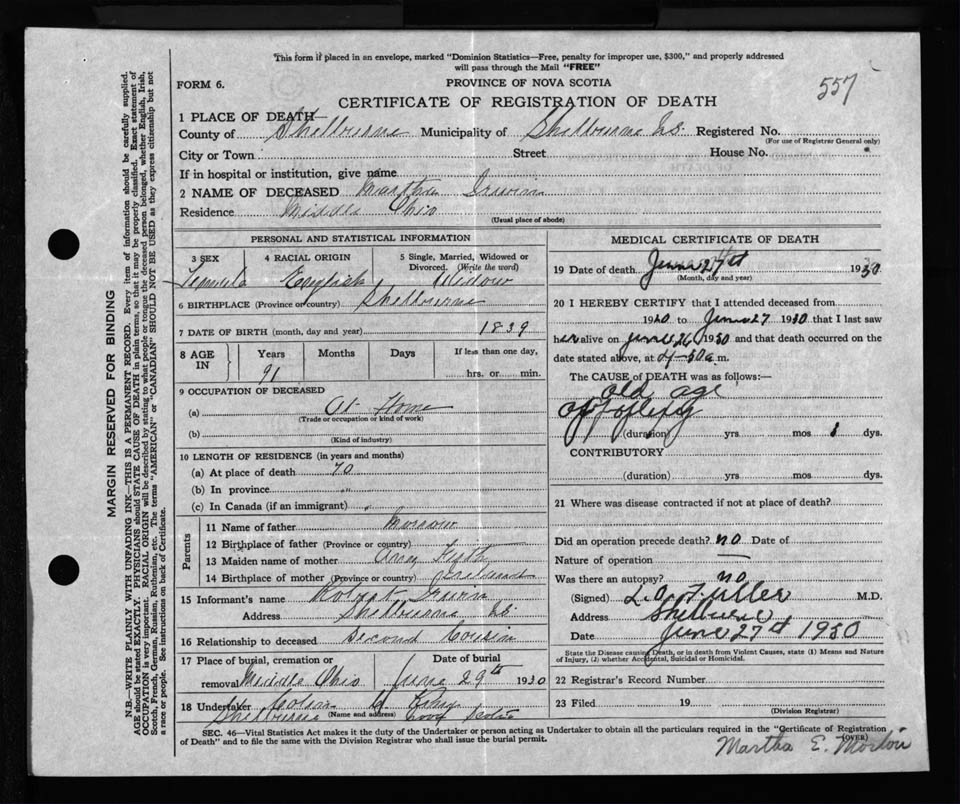 This form if placed in an envelope, marked "Dominion Statistics—Free, penalty for improper use, $300," and properly addressed
will pass through the Mail "FREE"
FORM 6.
PROVINCE OF NOVA SCOTIA
557
CERTIFICATE OF REGISTRATION OF DEATH
1 PLACE OF DEATH—
County of Shelburne Municipality of Shelburne N.S. Registered No.
(For use of Registrar General only)
City or Town Street House No.
If in hospital or institution, give name
2 NAME OF DECEASED Martha Irwin
Residence Middle Ohio
(Usual place of abode)
PERSONAL AND STATISTICAL INFORMATION
3 SEX 4 RACIAL ORIGIN 5 Single, Married, Widowed or Divorced. (Write the word)
Female English Widow
6 BIRTHPLACE (Province or country) Shelburne
7 DATE OF BIRTH (month, day and year) 1839
8 AGE IN Years Months Days If less than one day,
91 hrs. or min.
9 OCCUPATION OF DECEASED
(a) At Home
(Trade or occupation or kind of work)
(b)
(Kind of industry)
10 LENGTH OF RESIDENCE (in years and months)
(a) At place of death 70
(b) In province "
(c) In Canada (if an immigrant)
Parents
11 Name of father
12 Birthplace of father (Province or country)
13 Maiden name of mother
14 Birthplace of mother (Province or country) Ireland
15 Informant's name Robert Irwin
Address Shelburne N.S.
16 Relationship to deceased Second Cousin
17 Place of burial, cremation or Date of burial
removal Middle Ohio June 29th 1930
18 Undertaker Colin
Shelburne (Name and address) Nova Scotia
MEDICAL CERTIFICATE OF DEATH
19 Date of death June 27th 1930
(Month, day and year)
20 I HEREBY CERTIFY that I attended deceased from
1920 to June 27 1930 that I last saw
her alive on June 26 1930 and that death occurred on the
date stated above, at 4-30 a.m.
The CAUSE of DEATH was as follows:—
old age
apoplexy
(duration) yrs mos 1 dys.
CONTRIBUTORY
(duration) yrs mos dys.
21 Where was disease contracted if not at place of death?
Did an operation precede death? no Date of
Nature of operation —
Was there an autopsy? no
(Signed) L.O. Fuller M.D.
Address Shelburne
Date June 27th 1930
State the Disease causing Death, or in death from Violent Causes, state (1) Means and Nature
of Injury, (2) whether Accidental, Suicidal or Homicidal.
22 Registrar's Record Number
23 Filed 19
(Division Registrar)
SEC. 46—Vital Statistics Act makes it the duty of the Undertaker or person acting as Undertaker to obtain all the particulars required in the "Certificate of Registration
of Death" and to file the same with the Division Registrar who shall issue the burial permit.
(OVER)
Martha E.
MARGIN RESERVED FOR BINDING
N.B.—WRITE PLAINLY WITH UNFADING INK—THIS IS A PERMANENT RECORD. Every item of information should be carefully supplied.
AGE should be stated EXACTLY. PHYSICIANS should STATE CAUSE OF DEATH in plain terms, so that it may be properly classified. Exact statement of
OCCUPATION is very important. RACIAL ORIGIN will be described by stating to what people or tongue the deceased person belonged, whether English, Irish,
Scotch, French, German, Russian, Ruthenian, etc. The terms "AMERICAN" or "CANADIAN" SHOULD NOT BE USED as they express citizenship but not
a race or people. See instructions on back of Certificate.